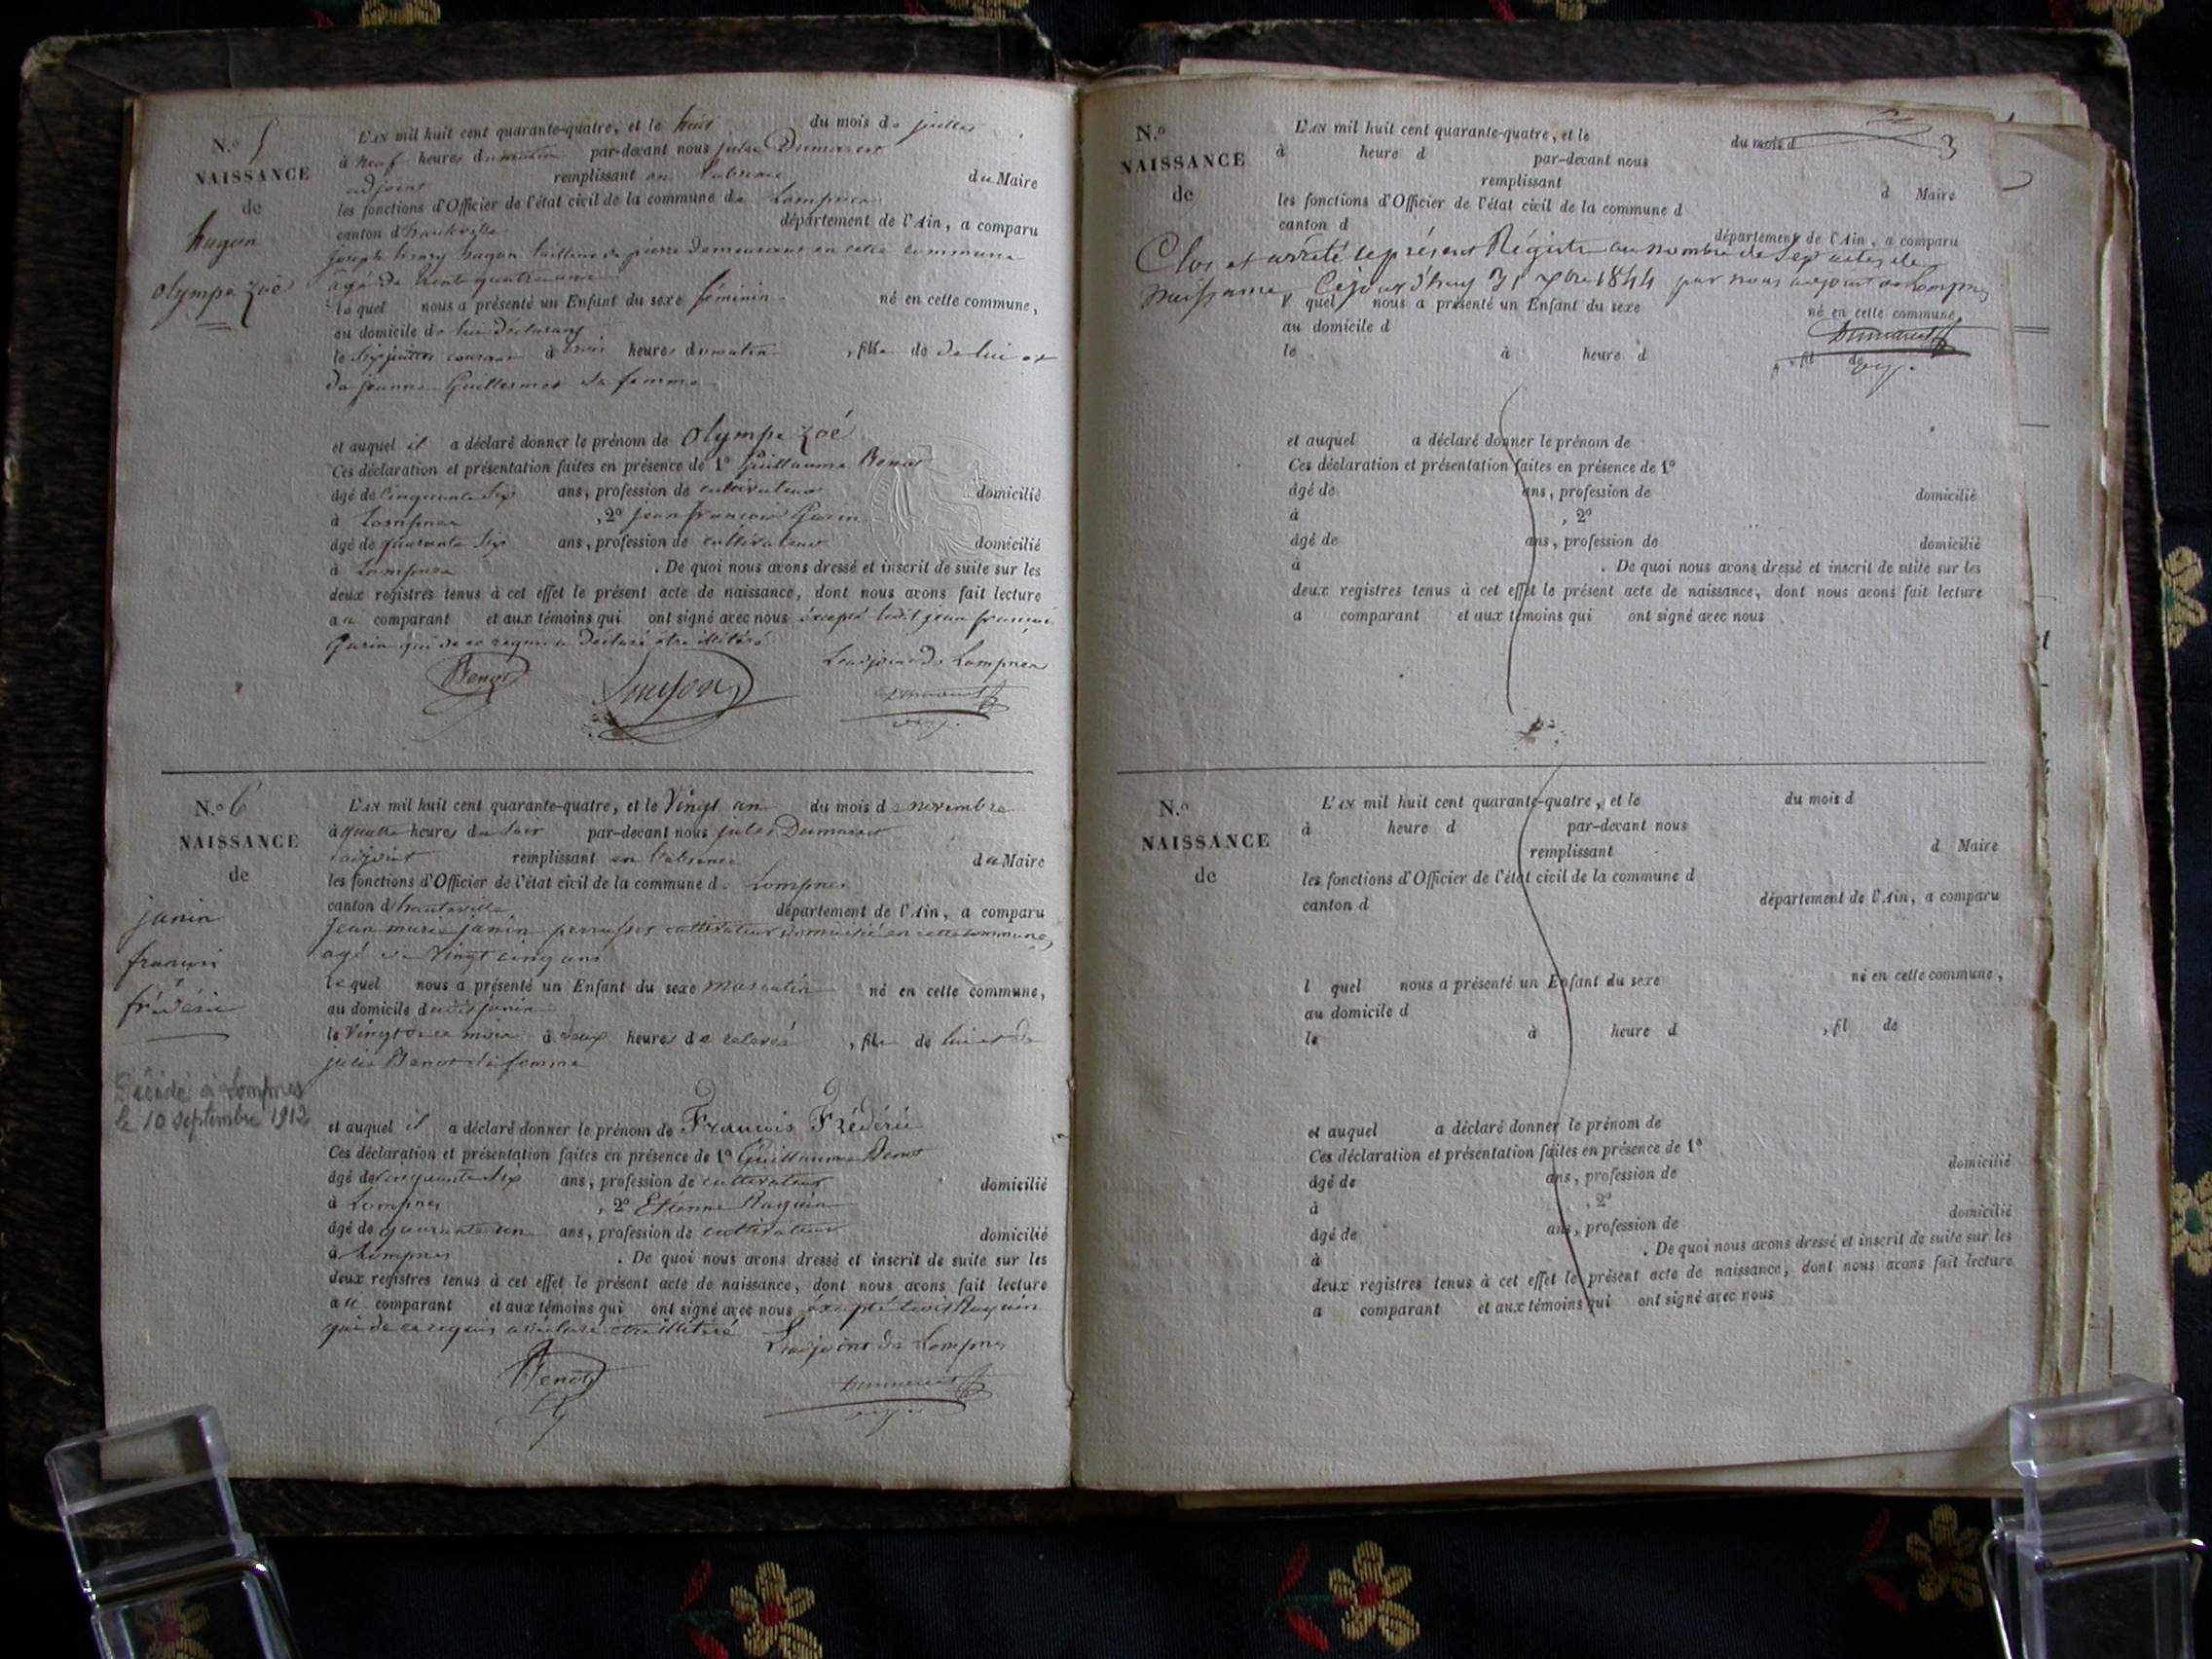 N.º 5
NAISSANCE
de
hugon
olympe zoé
L'AN mil huit cent quarante-quatre, et le huit du mois de juillet
à neuf heures du matin par-devant nous jules Dumarest
adjoint remplissant en l'absence du Maire
les fonctions d'Officier de l'état civil de la commune de Lompnes
canton d'hauteville département de l'Ain, a comparu
joseph hugon tailleur de pierre demeurant en cette commune
agé de trente quatre ans
lequel nous a présenté un Enfant du sexe féminin né en cette commune,
au domicile de lui déclarant
le six juillet courant à trois heures du matin, fille de de lui et
de jeanne Guillermet sa femme
et auquel il a déclaré donner le prénom de Olympe Zoé
Ces déclaration et présentation faites en présence de 1º Guillaume Benot
âgé de cinquante six ans, profession de cultivateur domicilié
à Lompnes, 2º jean françois Gurin
âgé de quarante six ans, profession de cultivateur domicilié
à Lompnes. De quoi nous avons dressé et inscrit de suite sur les
deux registres tenus à cet effet le présent acte de naissance, dont nous avons fait lecture
au comparant et aux témoins qui ont signé avec nous éxcepté ledit jean françois
Gurin qui de ce requis a déclaré être illitéré
L'adjoint de Lompnes
Benot Hugon Dumarest
N.º 6
NAISSANCE
de
janin
françois
frédéric
Décédé à Lompnes
le 10 septembre 1912
L'AN mil huit cent quarante-quatre, et le Vingt un du mois de novembre
à quatre heures du soir par-devant nous jules Dumarest
adjoint remplissant en l'absence du Maire
les fonctions d'Officier de l'état civil de la commune de Lompnes
canton d'hauteville département de l'Ain, a comparu
Jean marie janin cultivateur domicilié en cette commune,
agé de Vingt cinq ans
lequel nous a présenté un Enfant du sexe masculin né en cette commune,
au domicile dudit janin
le Vingt de ce mois à deux heures de relevée, fils de lui et de
julie Benot sa femme
et auquel il a déclaré donner le prénom de François Frédéric
Ces déclaration et présentation faites en présence de 1º Guillaume Benot
âgé de cinquante six ans, profession de cultivateur domicilié
à Lompnes, 2º Etienne Raquin
âgé de quarante un ans, profession de cultivateur domicilié
à Lompnes. De quoi nous avons dressé et inscrit de suite sur les
deux registres tenus à cet effet le présent acte de naissance, dont nous avons fait lecture
au comparant et aux témoins qui ont signé avec nous éxcepté ledit Raquin
qui de ce requis a déclaré être illitéré L'adjoint de Lompnes
Benot Dumarest
3
N.º
NAISSANCE
de
L'AN mil huit cent quarante-quatre, et le du mois d
à heure d par-devant nous
remplissant d Maire
les fonctions d'Officier de l'état civil de la commune d
canton d département de l'Ain, a comparu
Clos et arrêté le présent Régistre au nombre de Six actes de
naissance, Cejourd'huy 31 Xbre 1844 par nous adjoint de Lompnes
l quel nous a présenté un Enfant du sexe né en cette commune,
Dumarest
au domicile d
le à heure d , fil de
et auquel a déclaré donner le prénom de
Ces déclaration et présentation faites en présence de 1º
âgé de ans, profession de domicilié
à , 2º
âgé de ans, profession de domicilié
à . De quoi nous avons dressé et inscrit de suite sur les
deux registres tenus à cet effet le présent acte de naissance, dont nous avons fait lecture
a comparant et aux témoins qui ont signé avec nous
N.º
NAISSANCE
de
L'AN mil huit cent quarante-quatre, et le du mois d
à heure d par-devant nous
remplissant d Maire
les fonctions d'Officier de l'état civil de la commune d
canton d département de l'Ain, a comparu
l quel nous a présenté un Enfant du sexe né en cette commune,
au domicile d
le à heure d , fil de
et auquel a déclaré donner le prénom de
Ces déclaration et présentation faites en présence de 1º
âgé de ans, profession de domicilié
à , 2º
âgé de ans, profession de domicilié
à . De quoi nous avons dressé et inscrit de suite sur les
deux registres tenus à cet effet le présent acte de naissance, dont nous avons fait lecture
a comparant et aux témoins qui ont signé avec nous